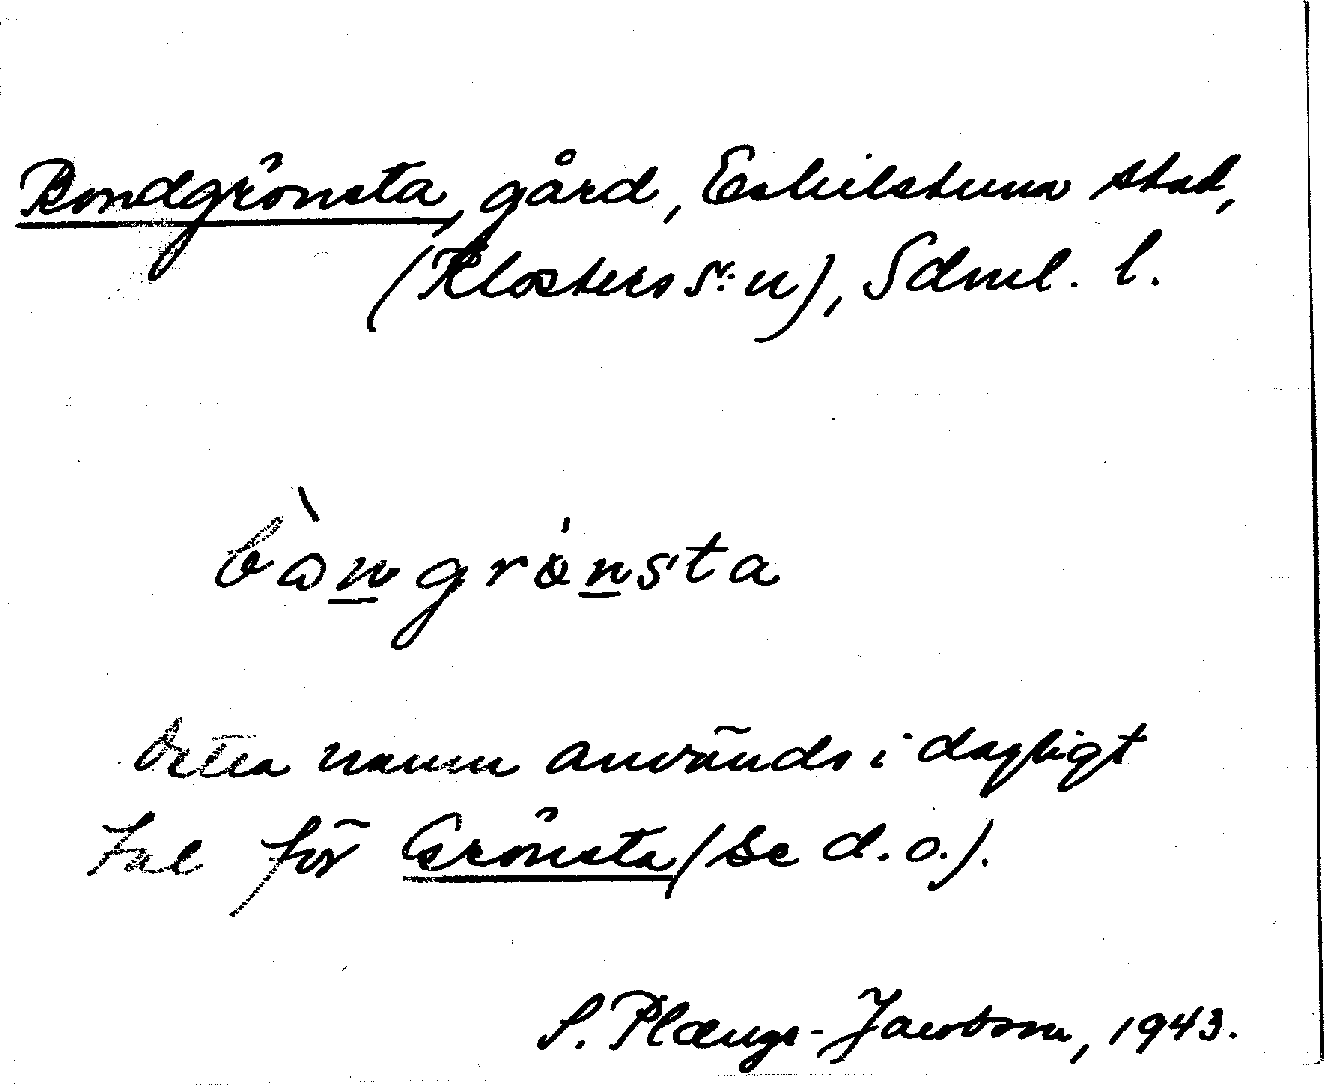 Bondgrönsta, gård, Eskilstuna stad,
(Klosters s:n), Södml. l.
bò̀ngrönsta
Detta namn användes i dagligt
tal för Grönsta (se d.o.).
S. Plænge-Jacobson, 1943.